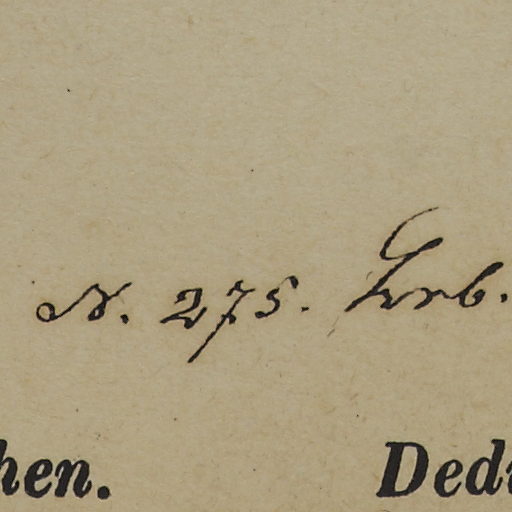 N. 275. Herb.
hen. Dedi